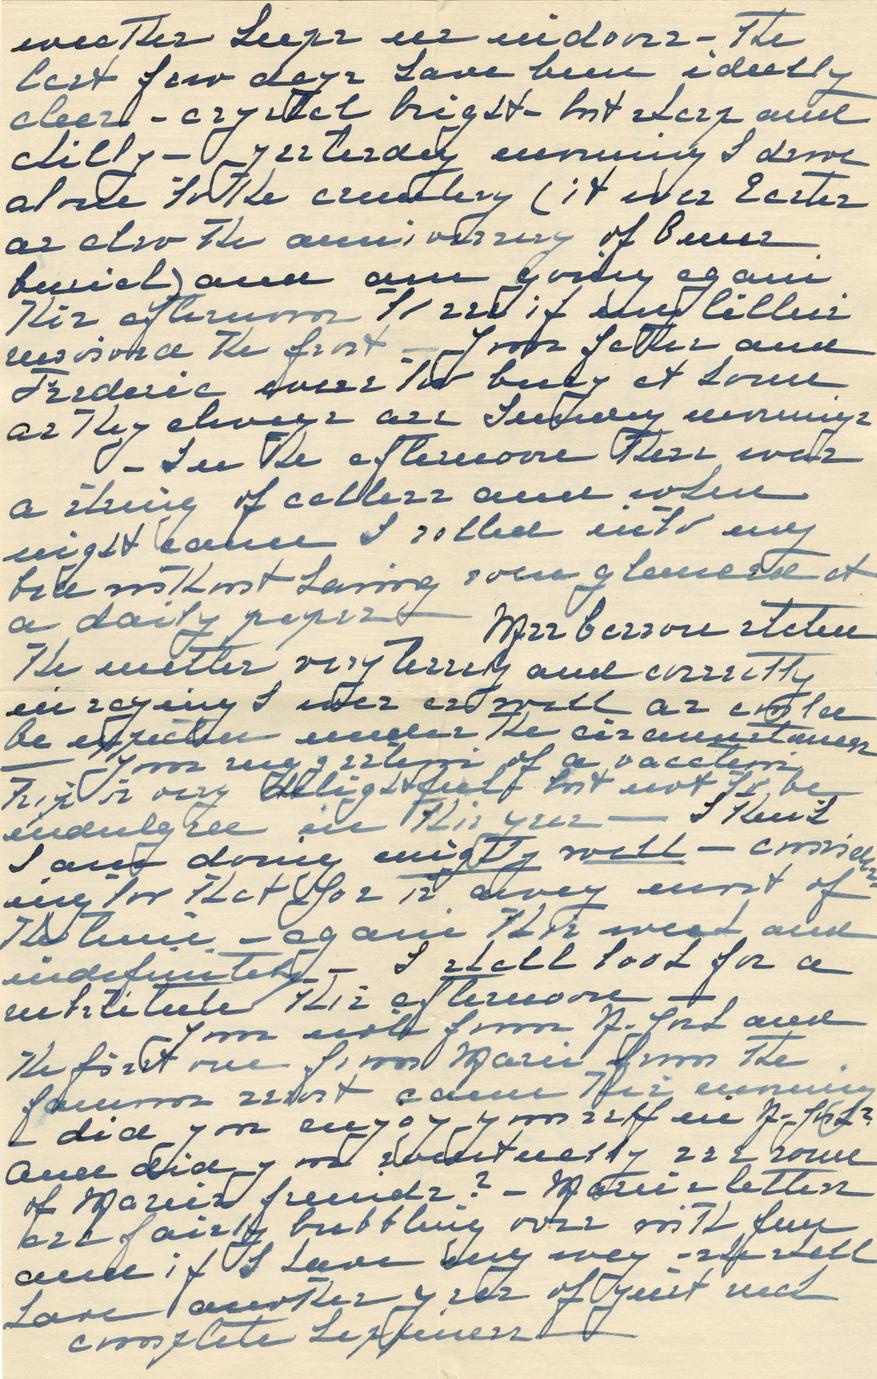 weather keeps us indoors - The
last few days have been ideally
clear - crystal bright - but sharp and
chilly - yesterday morning I drove
alone to the cemetery (it was Easter
as also the anniversary of
burial) and am going again
this afternoon to see if my lilies
survived the frost - Your father and
Frederic were too busy at home
as they always are Sunday mornings
- In the afternoon there was
a string of callers and when
night came I rolled into my
bed without having even glanced at
a daily paper -
Mrs stated
the matter very tersely and correctly
in saying I was as well as could
be expected under the circumstances
- Your suggestion of a vacation
trip is very delightful but not to be
indulged in this year - I think
I am doing mighty well - consider-
ing too that is away most of
the time - again this week and
indefinitely - I shall look for a
substitute this afternoon -
- Your note from N. York and
the first one from Marie from the
famous resort came this morning
- did you enjoy yourself in N. York?
and did you eventually see some
of Marie's friends? - Marie's letters
are fairly bubbling over with fun
and if I have my way - she shall
have another year of just such
complete happiness -